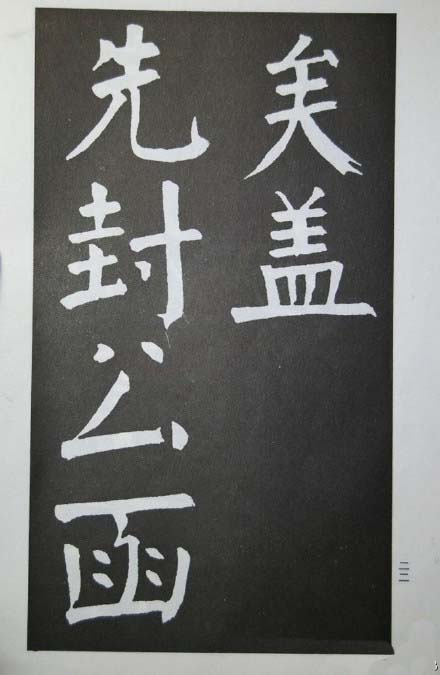 矣盖
先封公函